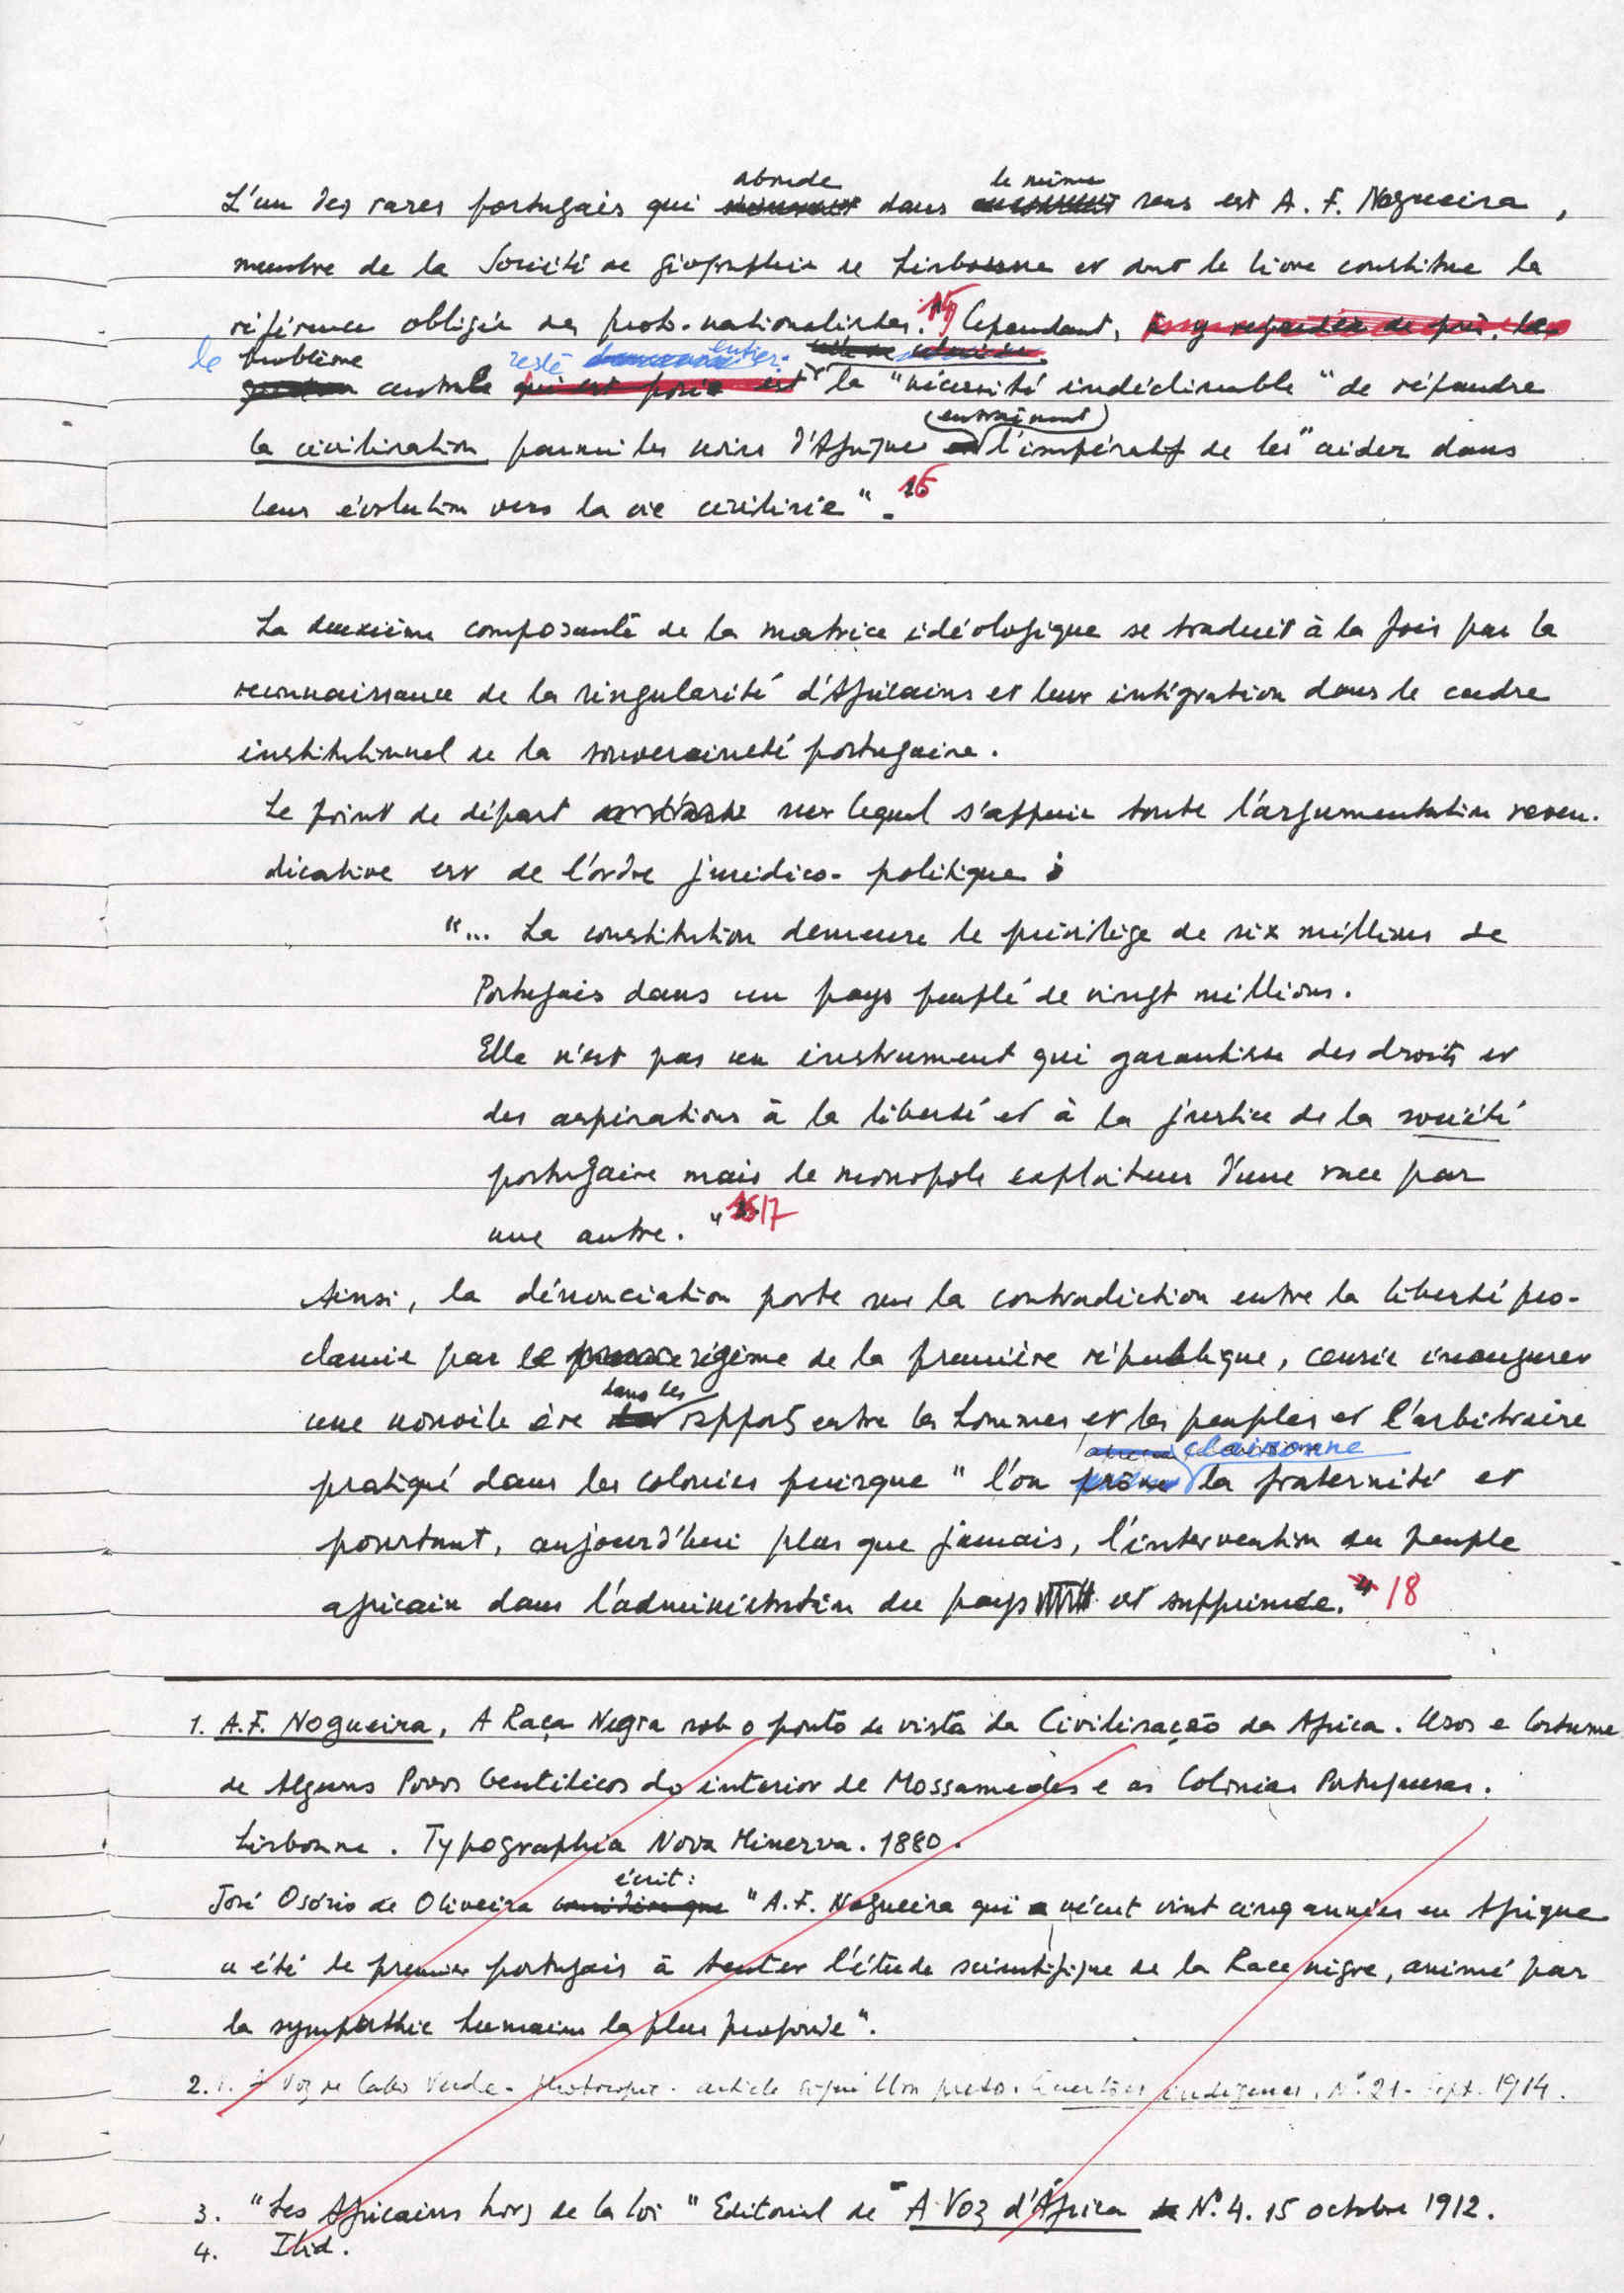 L'un des rares portugais qui abonde dans le même sens est A. F. Nogueira,
membre de la Société de Géographie de Lisbonne et dont le livre constitue la
référence obligée des proto-nationalistes. 15 Cependant,
le problème central reste entier: la "nécessité indéclinable" de répandre
la civilisation parmi les noirs d'Afrique (entraînant) l'impératif de les "aider dans
leur évolution vers la vie civilisée". 16
La deuxième composante de la matrice idéologique se traduit à la fois par la
reconnaissance de la singularité d'Africains et leur intégration dans le cadre
institutionnel de la souveraineté portugaise.
Le point de départ sur lequel s'appuie toute l'argumentation reven-
dicative est de l'ordre juridico-politique :
"... La constitution demeure le privilège de six millions de
Portugais dans un pays peuplé de vingt millions.
Elle n'est pas un instrument qui garantisse des droits et
des aspirations à la liberté et à la justice de la société
portugaise mais le monopole exploiteur d'une race par
une autre." 17
Ainsi, la dénonciation porte sur la contradiction entre la liberté pro-
clamée par le régime de la première république, censée inaugurer
une nouvelle ère dans les rapports entre les hommes et les peuples et l'arbitraire
pratiqué dans les colonies puisque "l'on claironne la fraternité et
pourtant, aujourd'hui plus que jamais, l'intervention du peuple
africain dans l'administration du pays est supprimée." 18
1. A.F. Nogueira, A Raça Negra sob o ponto de vista da Civilisação da Africa. Usos e Costume
de Alguns Povos Gentilicos do interior de Mossamedes e as Colonias Portuguesas.
Lisbonne. Typographia Nova Minerva. 1880.
José Osório de Oliveira écrit: "A.F. Nogueira qui vécut vint cinq années en Afrique
a été le premier portugais à tenter l'étude scientifique de la Race nègre, animé par
la sympathie humaine la plus profonde".
2. Voz de Cabo Verde - photocopie - article signé Um preto. Questões indigenas, Nº 21 - Sept. 1914.
3. "Les Africains hors de la loi" Editorial de A Voz d'África Nº 4. 15 octobre 1912.
4. Ibid.